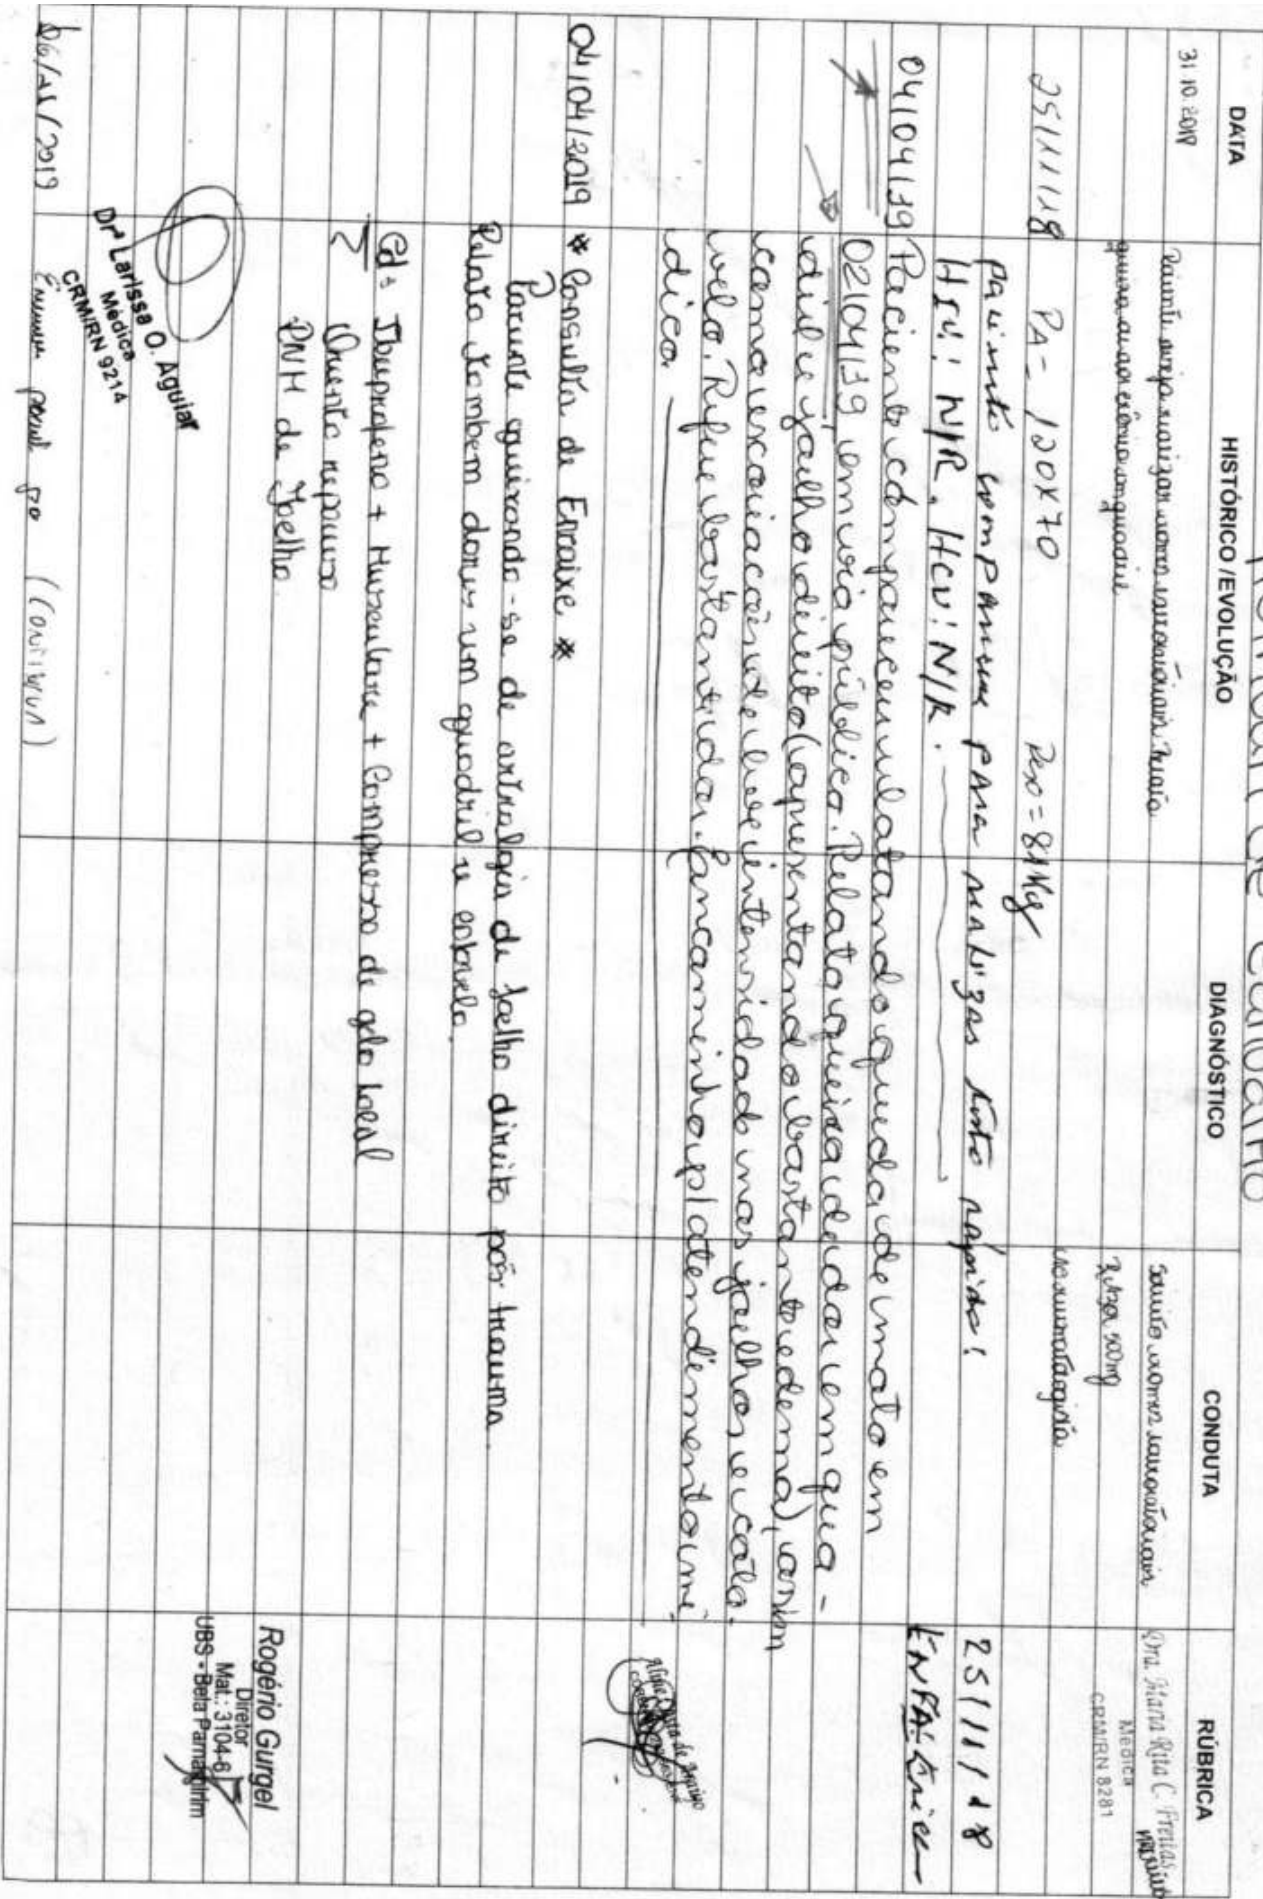 DATA
HISTÓRICO / EVOLUÇÃO
DIAGNÓSTICO
CONDUTA
RÚBRICA
de Carvalho
31.10.2018
realizar
Dra. Maria Rita C. Freitas
Médica
CRM/RN 8281
500mg
25/11/18 PA - 120x70 Peso = 81Kg
paciente comparece para realizar teste rápido!
25/11/18
HIV: N/R, HCV: N/R.
04/04/19 Paciente comparece relatando queda de moto em
02/04/19, em via pública. Relata queixa de dor em qua-
dril e joelho direito (apresentando bastante edema), assim
como escoriações de leve intensidade nos joelhos e coto-
velo. Refere bastante dor. Encaminho p/ atendimento mé-
dico.
04/04/2019 * Consulta de Encaixe *
Paciente queixando-se de artralgia de joelho direito pós trauma.
Relata também dores em quadril e cotovelo.
Cd: Ibuprofeno + Musculare + Compressa de gelo local
Oriento repouso
RNM de Joelho.
Drª Larissa O. Aguiar
Médica
CRM/RN 9214
Rogério Gurgel
Diretor
Mat.: 3104-6
UBS - Bela Parnamirim
06/11/2019
(CONTINUA)